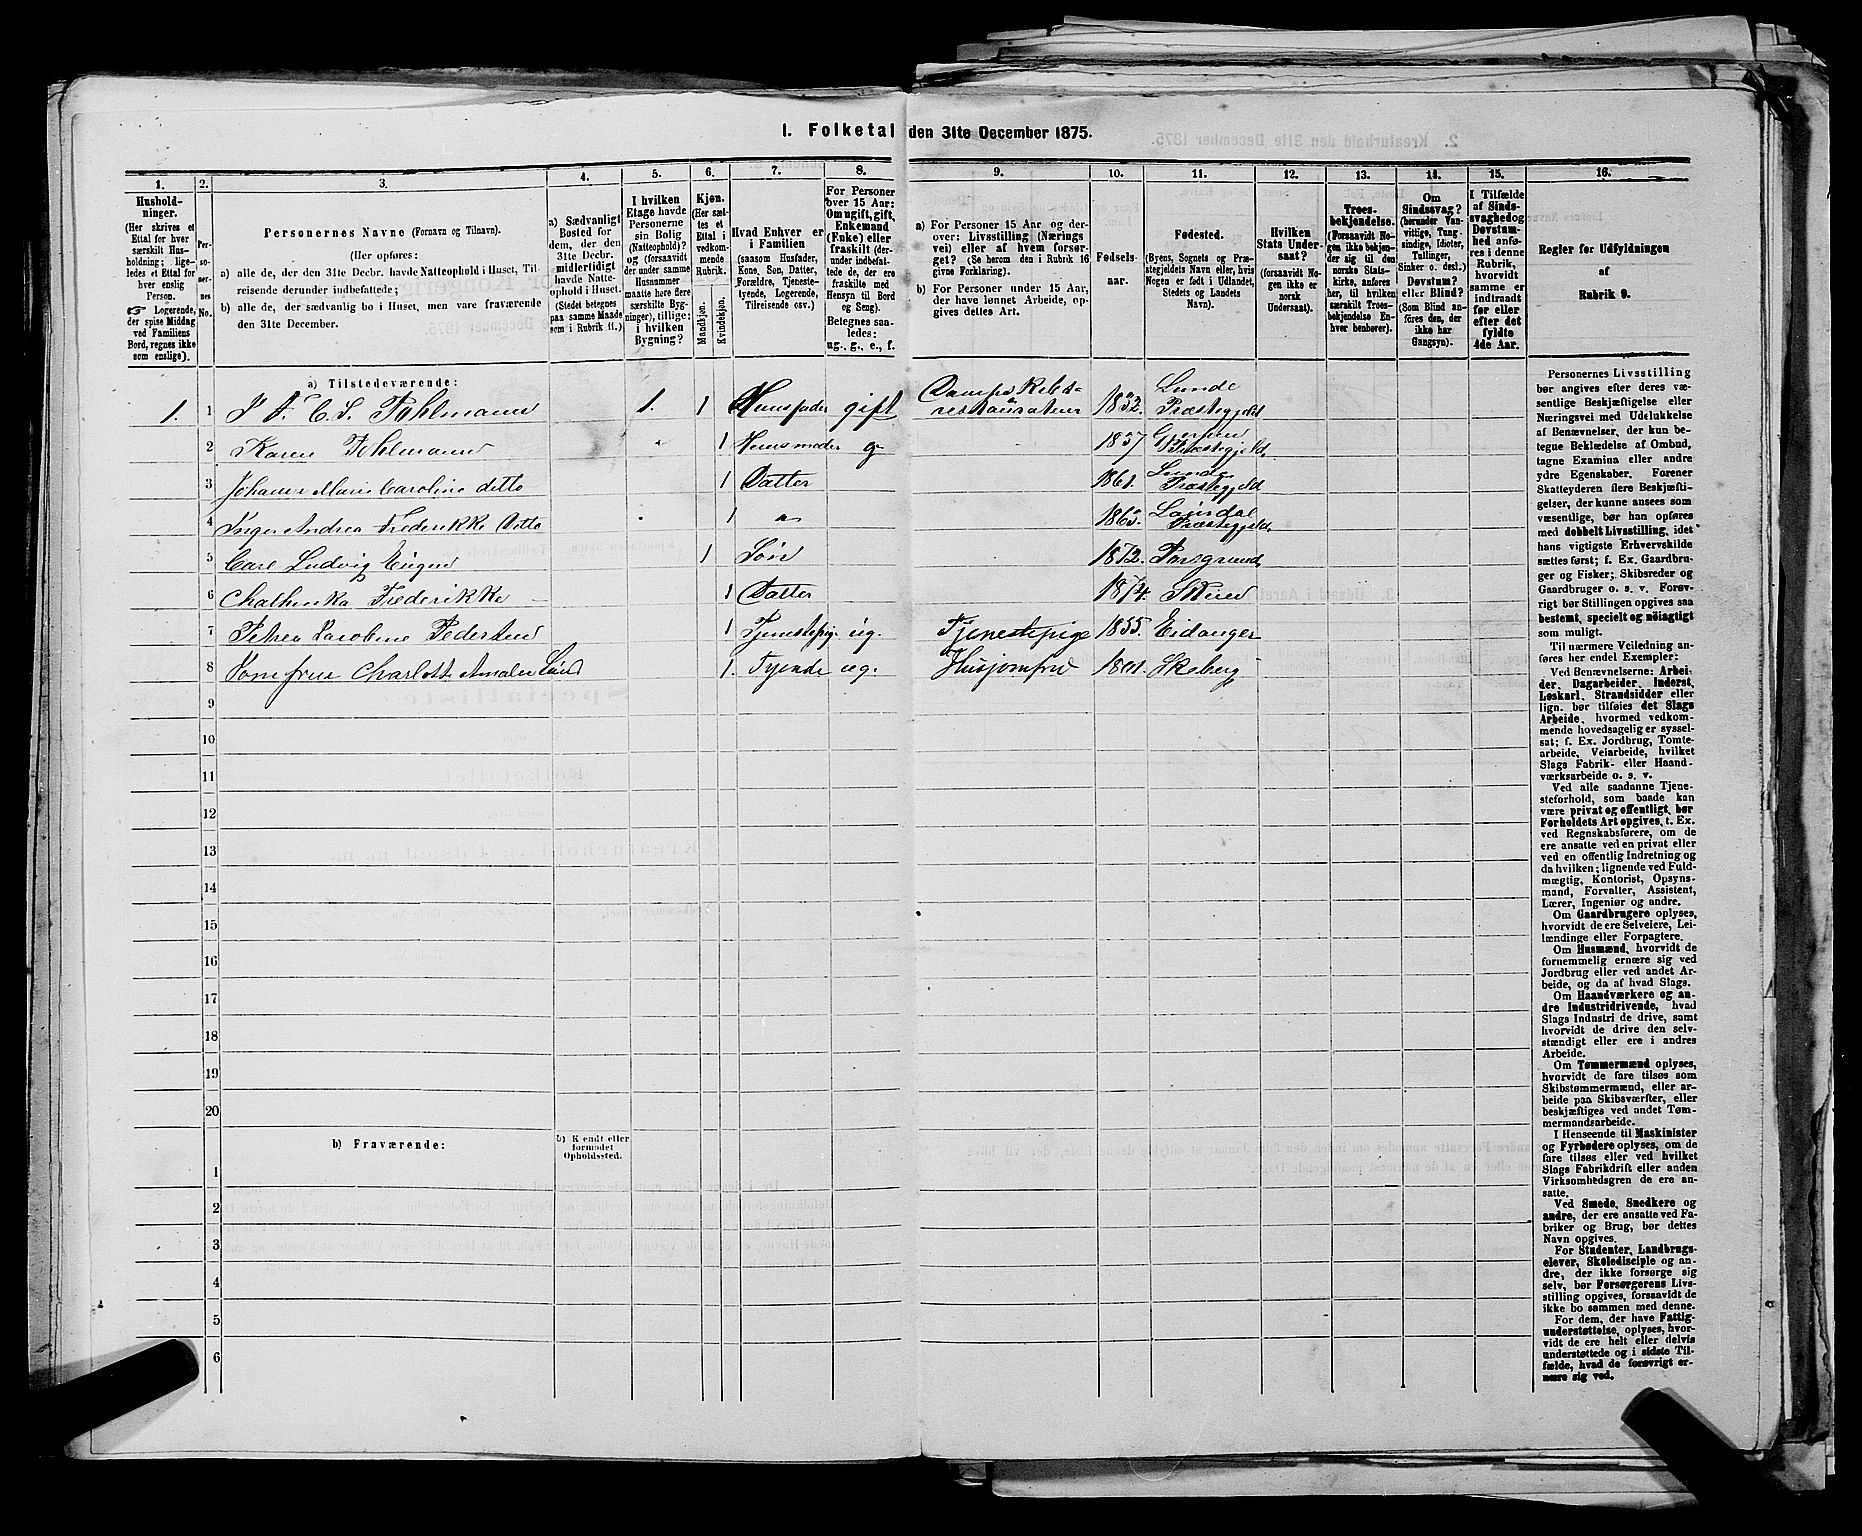 I. Folketal den 31te December 1875.
1. 2. 3. 4. 5. 6. 7. 8. 9. 10. 11. 12. 13. 14. 15. 16.
Hushold-
ninger.
(Her skrives et
Ettal for hver
særskilt Hus-
holdning; lige-
ledes et Ettal for
hver enslig
Person.
☞ Logerende,
der spise Middag
ved Familiens
Bord, regnes ikke
som enslige).
Per-
so-
ner-
nes
No.
Personernes Navne (Fornavn og Tilnavn).
(Her opføres:
a) alle de, der den 31te Decbr. havde Natteophold i Huset, Til-
reisende derunder indbefattede;
b) alle de, der sædvanlig bo i Huset, men vare fraværende
den 31te December.
a) Sædvanligt
Bosted for
dem, der den
31te Decbr.
midlertidigt
havde Natte-
ophold i Huset.
(Stedet betegnes
paa samme Maade
som i Rubrik 11.)
I hvilken
Etage havde
Personerne
sin Bolig
(Natteophold)?
og (forsaavidt
der under samme
Husnummer
maatte høre flere
særskilte Byg-
ninger), tillige:
i hvilken
Bygning?
Kjøn.
(Her sæt-
tes et
Ettal i
vedkom-
mende
Rubrik.
Mandkjøn.
Kvindekjøn.
Hvad Enhver er
i Familien
(saasom Husfader,
Kone, Søn, Datter,
Forældre, Tjeneste-
tyende, Logerende,
Tilreisende osv.)
For Personer
over 15 Aar:
Om ugift, gift,
Enkemand
(Enke) eller
fraskilt (der-
under indbefat-
tede de, der ere
fraskilte med
Hensyn til Bord
og Seng).
Betegnes saa-
ledes:
ug., g., e., f.
a) For Personer 15 Aar og der-
over: Livsstilling (Nærings-
vei) eller af hvem forsør-
get? (Se herom den i Rubrik 16
givne Forklaring).
b) For Personer under 15 Aar,
der have lønnet Arbeide, op-
gives dettes Art.
Fødsels-
aar.
Fødested.
(Byens, Sognets og Præ-
stegjeldets Navn eller, hvis
Nogen er født i Udlandet,
Stedets og Landets
Navn).
Hvilken
Stats Under-
saat?
(forsaavidt No-
gen ikke er
norsk
Undersaat).
Troes-
bekjendelse.
(Forsaavidt No-
gen ikke bekjen-
der sig til den
norske Stats-
kirke, anføres
her, til hvilken
særskilt Troes-
bekjendelse En-
hver henhører).
Om
Sindssvag?
(herunder Van-
vittige, Tung-
sindige, Idioter,
Tullinger,
Sinker o. desl.)
Døvstum?
eller Blind?
(Som Blind an-
føres den, der
ikke har
Gangsyn).
I Tilfælde
af Sinds-
svaghed og
Døvstum-
hed anfø-
res i denne
Rubrik,
hvorvidt
samme er
indtraadt
før eller
efter det
fyldte
4de Aar.
Regler for Udfyldningen
af
Rubrik 9.
a) Tilstedeværende:
1. 1 Pohlmann 1. 1 Huusfader gift Dampskibs-
restauratør 1832. Lunde
Præstegjeld
2 Karen Pohlmann " 1 Huusmoder g 1837 Præstegjeld.
3 Marie Caroline ditto 1 Datter 1861. Lunde
Præstegjeld
4 Inger Andrea Frederikke Ditto 1 " 1863. Præstegjeld.
5 Carl Ludvig Eugen 1 Søn 1872. Porsgrund
6 Frederikke 1 Datter 1874. Skien
7 Petrea Jacobine Pedersen 1 Tjenestepige ug. Tjenestepige 1855. Eidanger
8 Jomfru Charlotte Amalie 1. Tyende ug. Husjomfru Skeberg
9
10
11
12
13
14
15
16
17
18
19
20
b) Fraværende:
b) Kjendt eller
formodet
Opholdssted.
1
2
3
4
5
6
Personernes Livsstilling
bør angives efter deres væ-
sentlige Beskjæftigelse eller
Næringsvei med Udelukkelse
af Benævnelser, der kun be-
tegne Beklædelse af Ombud,
tagne Examina eller andre
ydre Egenskaber. Forener
Skatteyderen flere Beskjæfti-
gelser, der kunne ansees som
væsentlige, bør han opføres
med dobbelt Livsstilling, idet
hans vigtigste Erhvervskilde
sættes først; f. Ex. Gaardbru-
ger og Fisker; Skibsreder og
Gaardbruger o. s. v. Forøv-
rigt bør Stillingen opgives saa
bestemt, specielt og nøiagtigt
som muligt.
Til nærmere Veiledning an-
føres her endel Exempler:
Ved Benævnelserne: Arbei-
der, Dagarbeider, Inderst,
Løskarl, Strandsidder eller
lign. bør tilføies det Slags
Arbeide, hvormed vedkom-
mende hovedsagelig er syssel-
sat; f. Ex. Jordbrug, Tomte-
arbeide, Veiarbeide, hvilket
Slags Fabrik- eller Haand-
værksarbeide o. s. v.
Ved alle saadanne Tjene-
steforhold, som baade kan
være privat og offentligt, bør
Forholdets Art opgives, t. Ex.
ved Regnskabsførere, om de
ere ansatte ved en privat eller
ved en offentlig Indretning og
da hvilken; lignende ved Fuld-
mægtig, Kontorist, Opsyns-
mand, Forvalter, Assistent,
Lærer, Ingeniør og andre.
Om Gaardbrugere oplyses,
hvorvidt de ere Selveiere, Lei-
lændinge eller Forpagtere.
Om Husmænd, hvorvidt de
fornemmelig ernære sig ved
Jordbrug eller ved andet Ar-
beide, og da af hvad Slags.
Om Haandværkere og an-
dre Industridrivende, hvad
Slags Industri de drive, samt
hvorvidt de drive den selv-
stændigt eller ere i andres
Arbeide.
Om Tømmermænd oplyses,
hvorvidt de fare tilsøs som
Skibstømmermænd, eller ar-
beide paa Skibsværfter, eller
beskjæftiges ved andet Tøm-
mermandsarbeide.
I Henseende til Maskinister
og Fyrbødere oplyses, om de
fare tilsøs eller ved hvilket
Slags Fabrikdrift eller anden
Virksomhedsgren de ere an-
satte.
Ved Smede, Snedkere og
andre, der ere ansatte ved Fa-
briker og Brug, bør dettes
Navn opgives.
For Studenter, Landbrugs-
elever, Skoledisciple og an-
dre, der ikke forsørge sig
selv, bør Forsørgerens Livs-
stilling opgives, forsaavidt de
ikke bo sammen med denne.
For dem, der have Fattig-
understøttelse, oplyses, hvor-
vidt de ere helt eller delvis
understøttede og i sidste Til-
fælde, hvad de forøvrigt er-
nære sig ved.